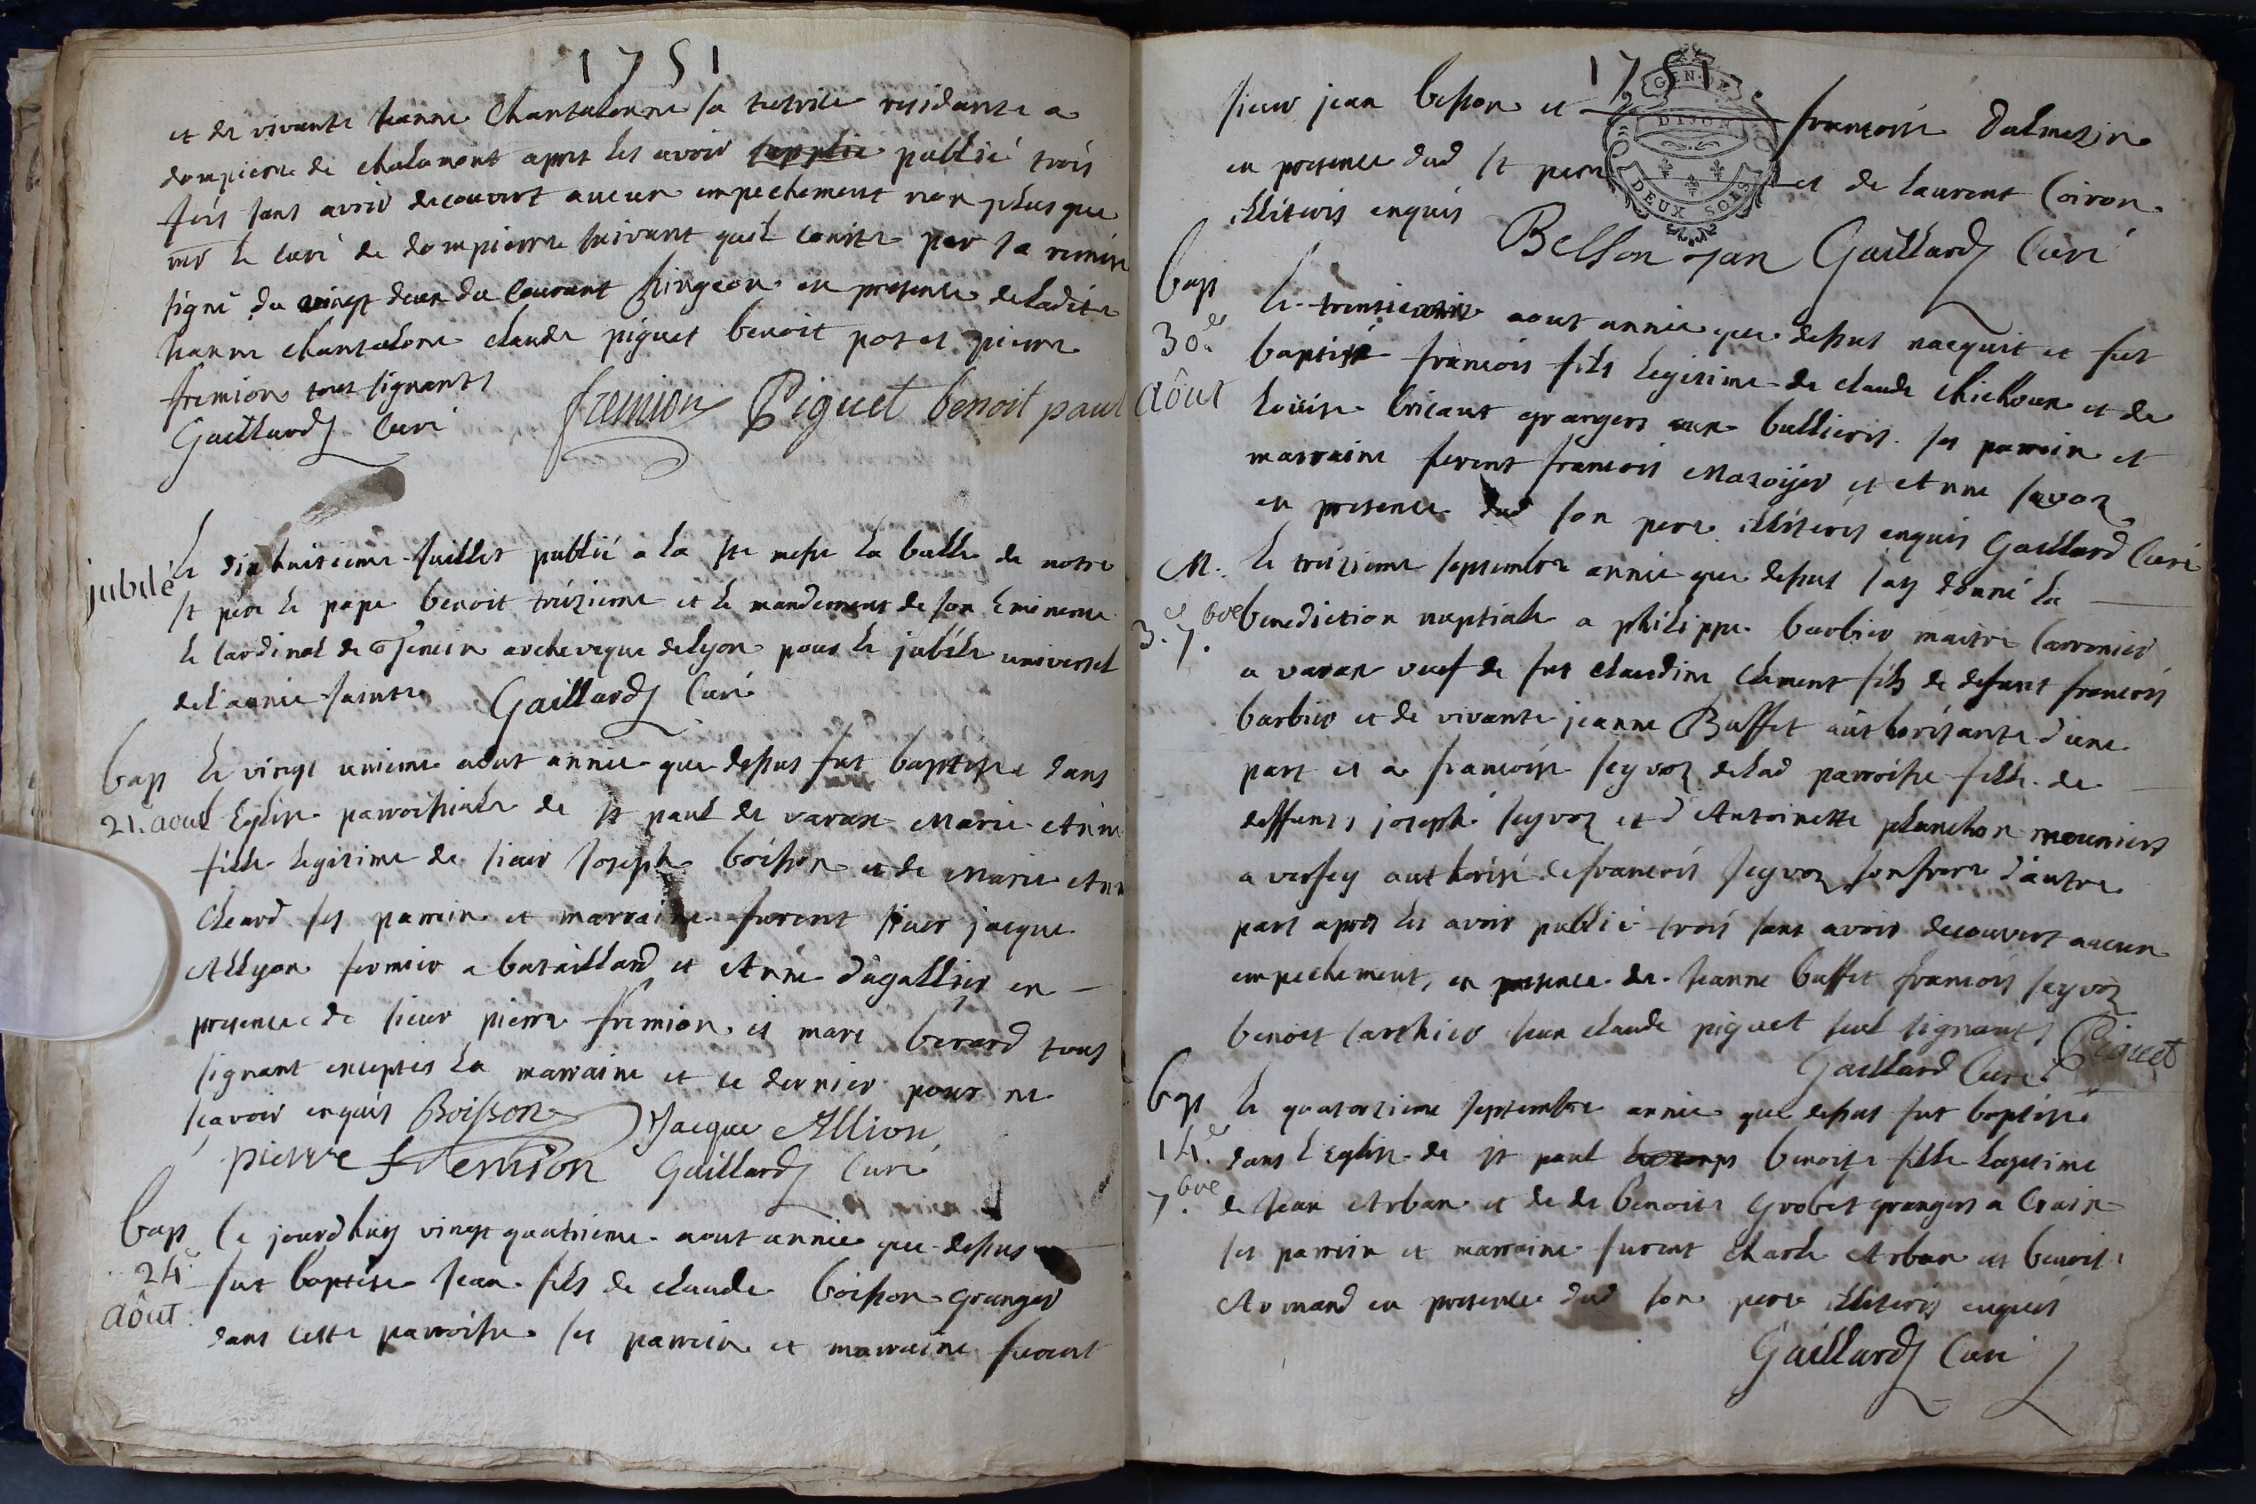 1751
et de vivante jeanne Chantalonne sa tutrice residante a
dompierre de chalamont apres les avoir publié trois
fois sans avoir decouvert aucun empechement non plus que
mr le curé de dompierre suivant quil conste par sa remise
signé du vingt deux du courant en presence de ladite
jeanne chantalone claude piguet benoit pot et pierre
fremion tous signants
Gaillard Curé fremion Piguet benoit paul
jubilé
le dix huitieme juillet publié a la ste messe la bulle de notre
st pere le pape benoit treizieme et le mandement de son Eminence
le Cardinal de Tencin archeveque de lyon pour le jubilé universel
de l'année sainte Gaillard Curé
bap
21. aout
le vingt unieme aout année que dessus fut baptisée dans
l'Eglise parroissiale de st paul de varax Marie Anne
fille legitime de sieur Joseph boisson et de Marie Ann
Cheard ses parrein et marraine furent sieur jacque
Allyon fermier a bataillard et Anne dagallier en
presence de sieur pierre fremion et marc berard tous
signant exceptés la marraine et ce dernier pour ne
scavoir enquis Boisson Jacque Allion
pierre fremion Gaillard Curé
bap
24e
Aôut
Ce jourdhuy vingt quatrieme aout année que dessus
fut baptisé Jean fils de claude boisson granger
dans cette parroisse ses parrein et marraine furent
1751
GEN. DE
DIJON
DEUX SOLS
sieur jean besson et françoise dalmezin
en presence dud st pere et de laurent Coiron
illiteris enquis
Besson jan Gaillard Curé
bap
30e
Aôut
le trentieme aout année que dessus naequit et fut
baptisé francois fils legitime de claude chichoux et de
Louise bricaut grangers aux bullieres ses parrein et
marraine furent francois Mazoyer et Anne savoz
en presence dud son pere illiteris enquis Gaillard Curé
M.
3e 7bre
le troisieme septembre année que dessus j'ay donné la
benediction nuptiale a philippe barbier maitre
a varax veuf de fut claudine clement fils de defunt francois
barbier et de vivante jeanne Buffet authorisante d'une
part et a francoise seyvoz de lad parroisse fille de
deffunts joseph seyvoz et d'Antoinette planchon mouniers
a versey authorisé de francois seyvoz son frere d'autre
part apres les avoir publié trois sans avoir decouvert aucun
empechement, en presence de jeanne buffet francois seyvoz
benoit jean claude piguet seul signant Piguet
Gaillard Curé
bap
14e
7bre
le quatorzieme septembre année que dessus fut baptisée
dans l'Eglise de st paul benoite fille legitime
de jean Arban et de de benoite grobet grangers a Craix
ses parrein et marraine furent charle Arban et benoite
Armand en presence dud son pere illiteris enquis
Gaillard Curé